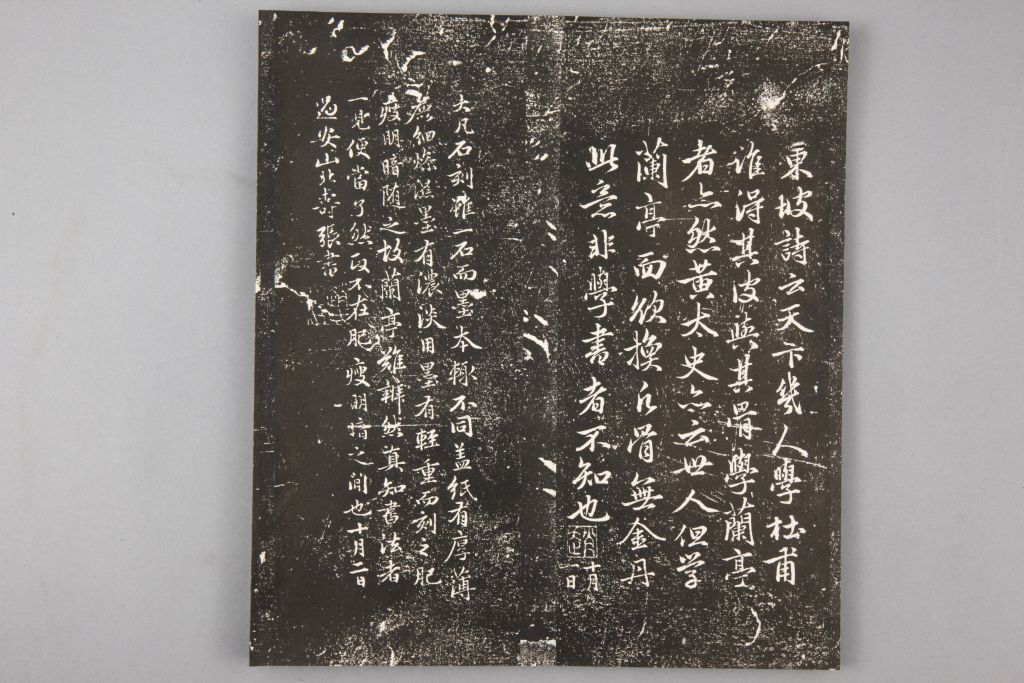 東坡詩云天下幾人學杜甫
誰得其皮與其骨學蘭亭
者亦然黃太史亦云世人但学
蘭亭面欲換凡骨無金丹
此意非學書者不知也
十月一日
大凡石刻雖一石而墨本輒不同盖紙有厚薄
麁細燥濕墨有濃淡用墨有輕重而刻之肥
瘦明暗随之故蘭亭難辨然真知書法者
一見便當了然政不在肥瘦明暗之間也十月二日
過安山北壽張書